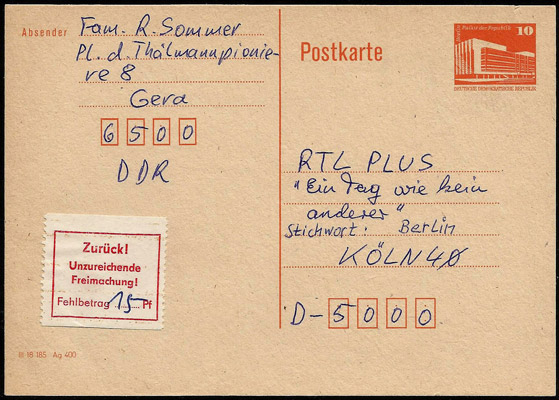 Absender Fam. R. Sommer
Pl. d. Thälmannpionie-
re 8
Gera
6500
DDR
Zurück!
Unzureichende
Freimachung!
Fehlbetrag 15 Pf
III 18 185 Ag 400
Postkarte
10
Berlin, Palast der Republik
DEUTSCHE DEMOKRATISCHE REPUBLIK
RTL PLUS
"Ein Tag wie kein
anderer"
Stichwort: Berlin
KÖLN 40
D-5000